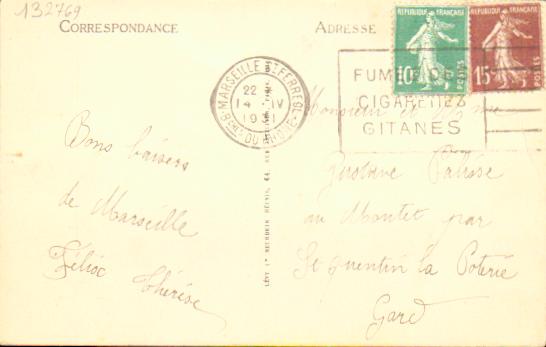 132769
CORRESPONDANCE
ADRESSE
REPUBLIQUE FRANÇAISE
10c
POSTES
REPUBLIQUE FRANÇAISE
15c
POSTES
MARSEILLE ST FERREOL
22
14 IV
19
BCHES DU RHÔNE
FUMEZ DES
CIGARETTES
GITANES
Bons baisers
de Marseille
Félix
Thérèse
Monsieur et Mme
Gustave Palisse
au Moutet par
St Quentin la Poterie
Gard
LÉVY ET NEURDEIN RÉUNIS, 44, RUE